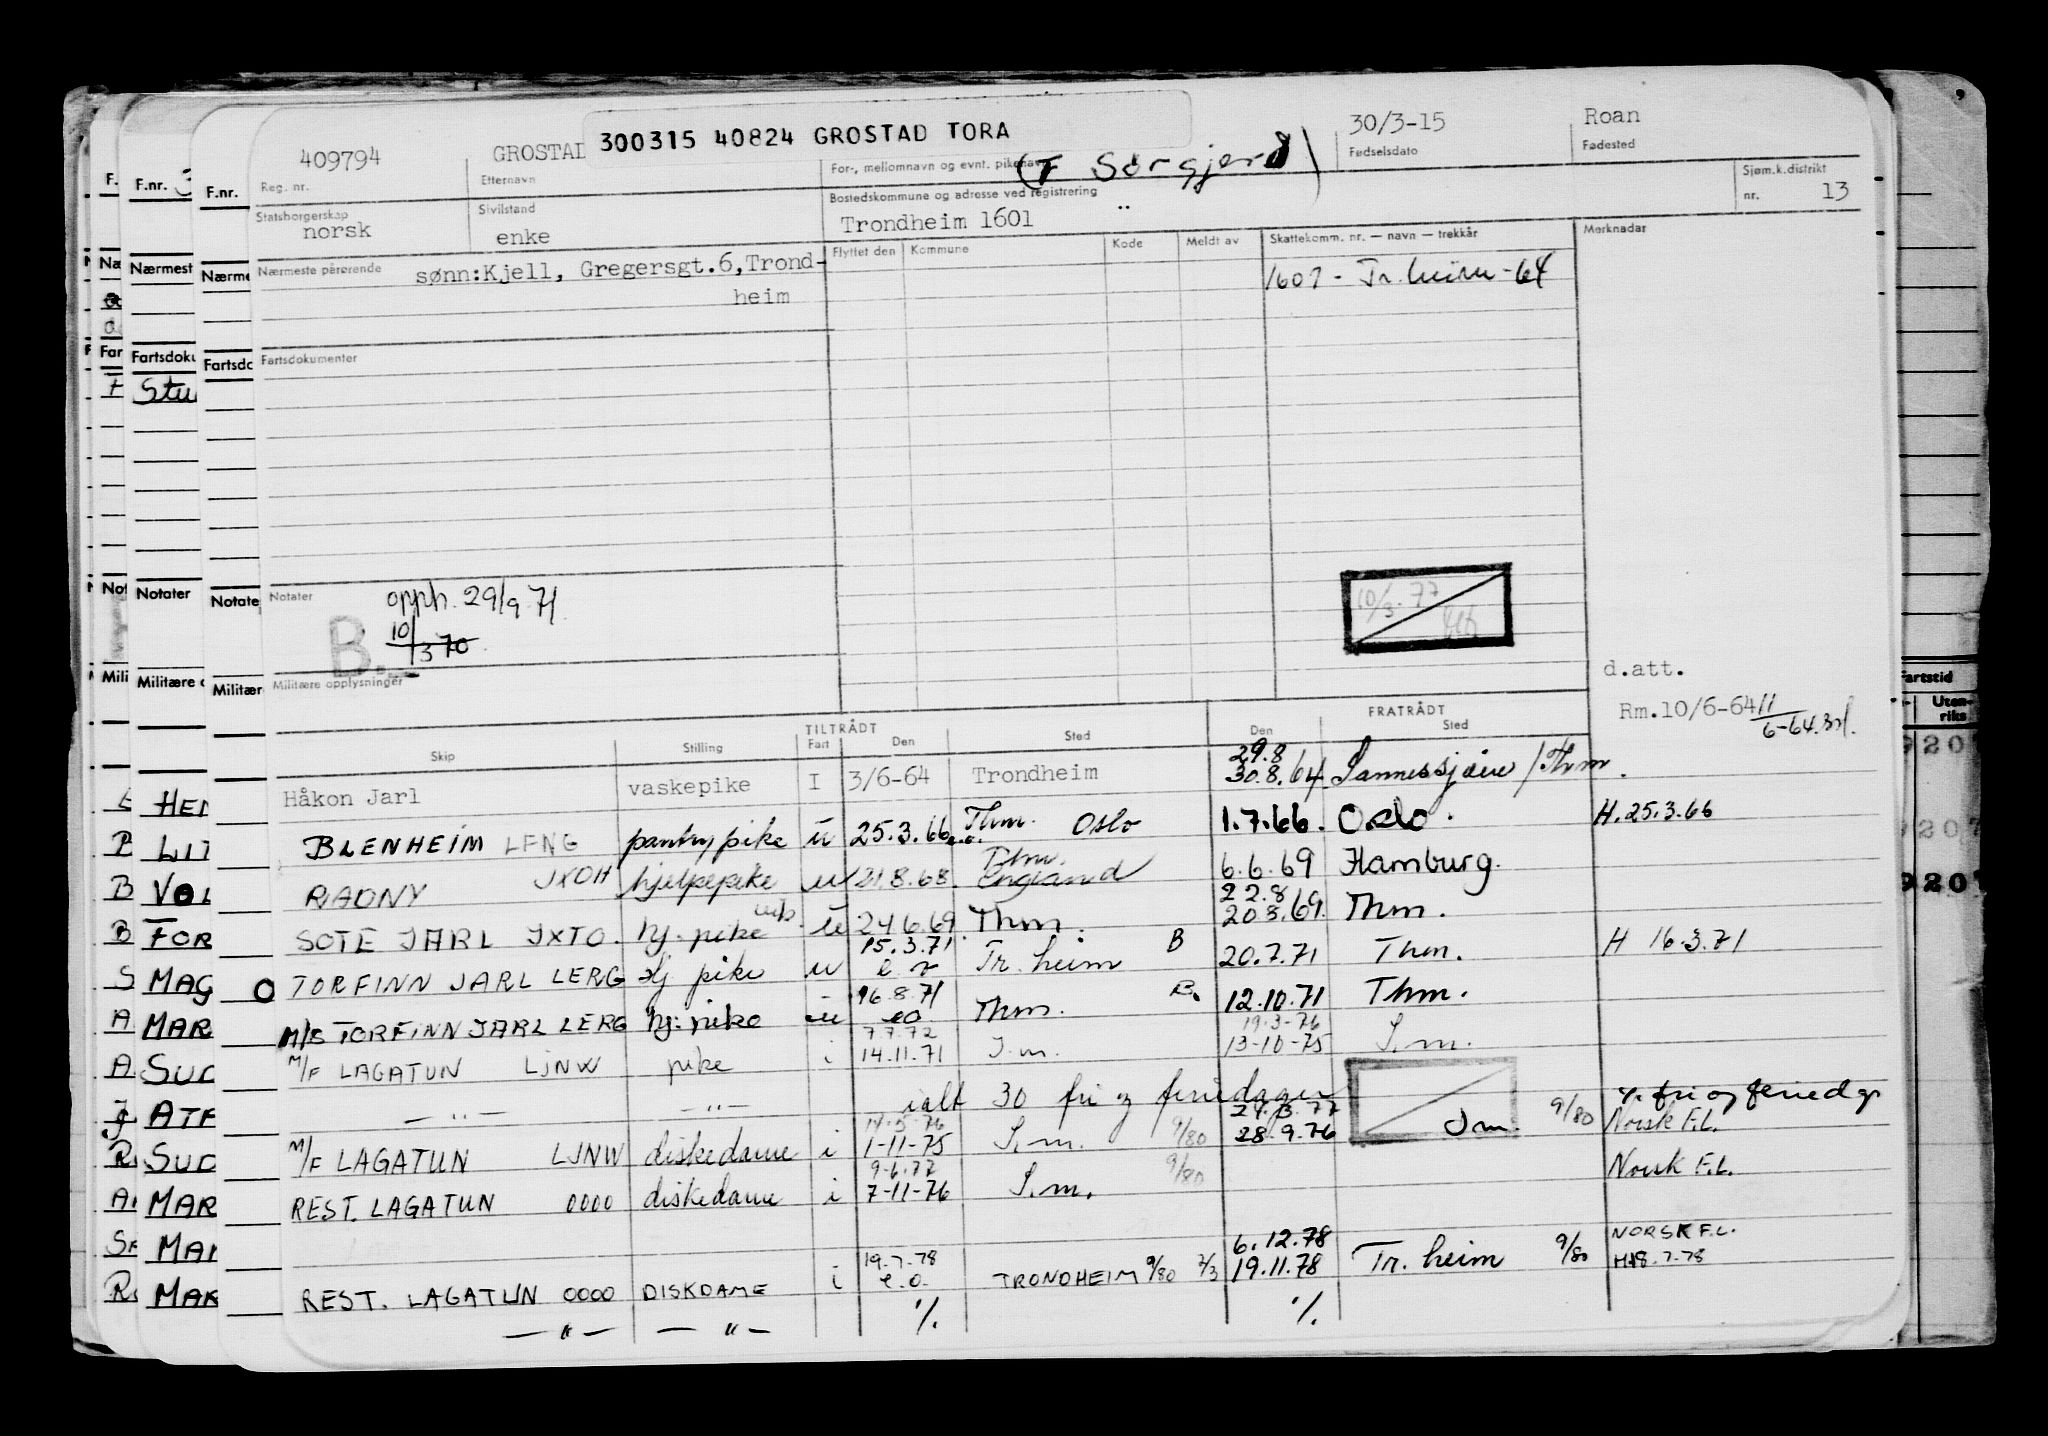 300315 40824 GROSTAD TORA
409794 GROSTAD 30/3-15 Roan
Reg. nr. Etternavn For-, mellomnavn og evnt. pikenavn Fødselsdato Fødested
(F Sørgjerd)
Statsborgerskap Sivilstand Bostedskommune og adresse ved registrering Sjøm.k.distrikt
norsk enke Trondheim 1601 nr. 13
Nærmeste pårørende Flyttet den Kommune Kode Meldt av Skattekomm. nr. — navn — trekkår Merknader
sønn:Kjell, Gregersgt.6,Trond-
heim
1601 - Tr.heim -64
Fartsdokumenter
Notater
opph. 29/9.71
B. 10/3 70
10/3.77
Militære opplysninger
d.att.
Rm.10/6-64 11/6-64
TILTRÅDT FRATRÅDT
Skip Stilling Fart Den Sted Den Sted
29.8
Håkon Jarl vaskepike I 3/6-64 Trondheim 30.8.64 Sannessjøen / Thm.
BLENHEIM LENG pantrypike u 25.3.66 e.o. Thm. Oslo 1.7.66. Oslo. H.25.3.66
RADNY JXOH hjelpepike u 21.8.68 Thm. England 6.6.69 Hamburg.
22.8
SOTE JARL JXTO. hj. pike u 24.6.69 Thm. 20.8.69. Thm.
15.3.71
TORFINN JARL LERG hj pike u Tr. heim B 20.7.71 Thm. H 16.3.71
16.8.71
M/S TORFINN JARL LERG hj. pike u eo Thm. B. 12.10.71 Thm.
7.7.72 19-3-76
M/F LAGATUN LJNW pike i 14.11.71 S.m. 13-10-75 S.m.
— " — — " — ialt 30 fri og feriedager fri og feriedgr
14-5-76
M/F LAGATUN LJNW diskedame i 1-11-75 S.m. 9/80 28.9.76 S.m. 9/80 Norsk F.L.
9-6.77
REST. LAGATUN 0000 diskedame i 7-11-76 S.m. 9/80 Norsk F.L.
19.7.78 6.12.78 NORSK F.L.
REST. LAGATUN 0000 DISKDAME i e.o. TRONDHEIM 9/80 2/3 19.11.78 Tr. heim 9/80 H18.7.78
— " — — " — ./. ./.
F.nr.
F.nr.
Nærmest
Fartsdoku
Notater
Militære o
Fartstid
Uten-
riks